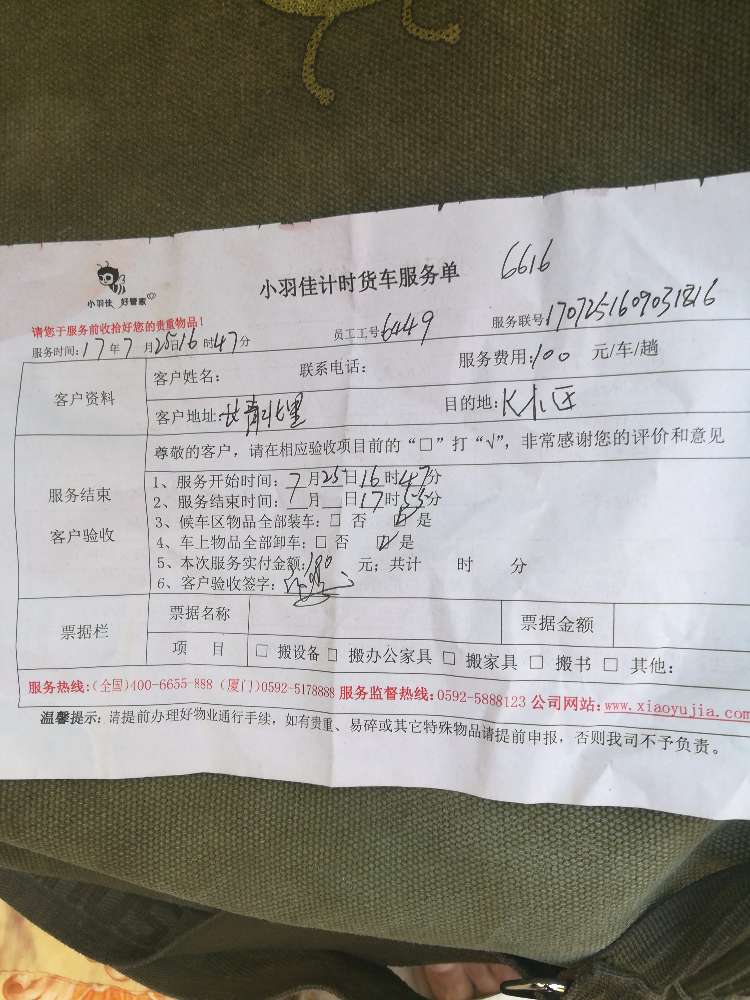 小羽佳 好管家
小羽佳计时货车服务单 6616
请您于服务前收拾好您的贵重物品！
服务时间：17年7月25日16时47分 员工工号：6449 服务联号：1707251609031816
客户资料
客户姓名： 联系电话： 服务费用：100 元/车/趟
客户地址：长青北里 目的地：
服务结束
客户验收
尊敬的客户，请在相应验收项目前的“□”打“√”，非常感谢您的评价和意见
1、服务开始时间：7月25日16时47分
2、服务结束时间：7月__日17时55分
3、候车区物品全部装车：□ 否 ☑ 是
4、车上物品全部卸车：□ 否 ☑ 是
5、本次服务实付金额：100 元；共计 时 分
6、客户验收签字：
票据栏
票据名称 票据金额
项 目 □ 搬设备 □ 搬办公家具 □ 搬家具 □ 搬书 □ 其他：
服务热线：(全国)400-6655-888 (厦门)0592-5178888 服务监督热线：0592-5888123 公司网站：www.xiaoyujia.com
温馨提示：请提前办理好物业通行手续，如有贵重、易碎或其它特殊物品请提前申报，否则我司不予负责。